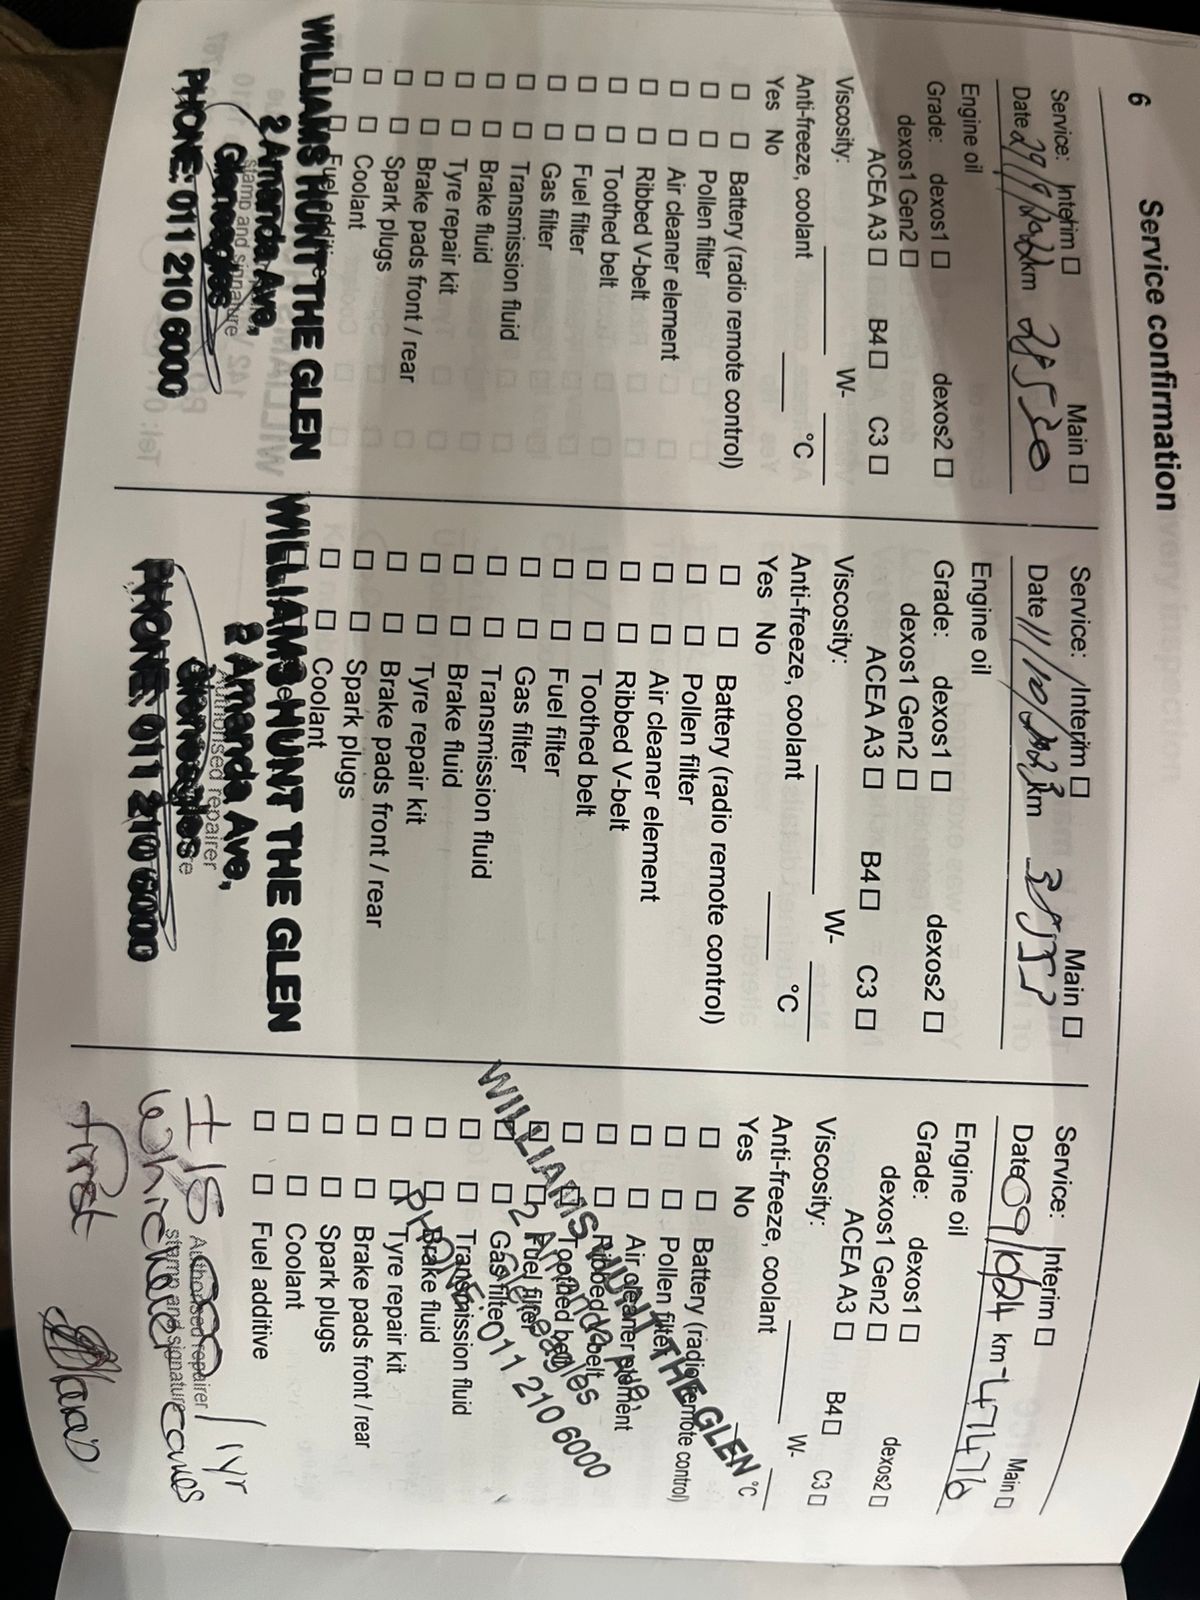 6 Service confirmation
Service: Interim ☐ Main ☐
Date 29/9/2022 km 28530
Engine oil
Grade: dexos1 ☐ dexos2 ☐
dexos1 Gen2 ☐
ACEA A3 ☐ B4 ☐ C3 ☐
Viscosity: W-
Anti-freeze, coolant °C
Yes No
☐ ☐ Battery (radio remote control)
☐ ☐ Pollen filter
☐ ☐ Air cleaner element
☐ ☐ Ribbed V-belt
☐ ☐ Toothed belt
☐ ☐ Fuel filter
☐ ☐ Gas filter
☐ ☐ Transmission fluid
☐ ☐ Brake fluid
☐ ☐ Tyre repair kit
☐ ☐ Brake pads front / rear
☐ ☐ Spark plugs
☐ ☐ Coolant
☐ ☐ Fuel additive
WILLIAMS HUNT THE GLEN
2 Amanda Ave,
Gleneagles
stamp and signature
PHONE: 011 210 6000
Service: Interim ☐ Main ☐
Date 11/10/2023 km
Engine oil
Grade: dexos1 ☐ dexos2 ☐
dexos1 Gen2 ☐
ACEA A3 ☐ B4 ☐ C3 ☐
Viscosity: W-
Anti-freeze, coolant °C
Yes No
☐ ☐ Battery (radio remote control)
☐ ☐ Pollen filter
☐ ☐ Air cleaner element
☐ ☐ Ribbed V-belt
☐ ☐ Toothed belt
☐ ☐ Fuel filter
☐ ☐ Gas filter
☐ ☐ Transmission fluid
☐ ☐ Brake fluid
☐ ☐ Tyre repair kit
☐ ☐ Brake pads front / rear
☐ ☐ Spark plugs
☐ ☐ Coolant
WILLIAMS HUNT THE GLEN
2 Amanda Ave,
Authorised repairer
Gleneagles
PHONE 011 210 6000
Service: Interim ☐ Main ☐
Date 09/10/24 km - 47476
Engine oil
Grade: dexos1 ☐ dexos2 ☐
dexos1 Gen2 ☐
ACEA A3 ☐ B4 ☐ C3 ☐
Viscosity: W-
Anti-freeze, coolant °C
Yes No
☐ ☐ Battery (radio remote control)
☐ ☐ Pollen filter
☐ ☐ Air cleaner element
☐ ☐ Ribbed V-belt
☐ ☐ Toothed belt
☐ ☐ Fuel filter
☐ ☐ Gas filter
☐ ☐ Transmission fluid
☐ ☐ Brake fluid
☐ ☐ Tyre repair kit
☐ ☐ Brake pads front / rear
☐ ☐ Spark plugs
☐ ☐ Coolant
☐ ☐ Fuel additive
WILLIAMS HUNT THE GLEN
2 Amanda Ave,
Gleneagles
PHONE: 011 210 6000
Authorised repairer
stamp and signature
/ 1yr
whichever comes
first